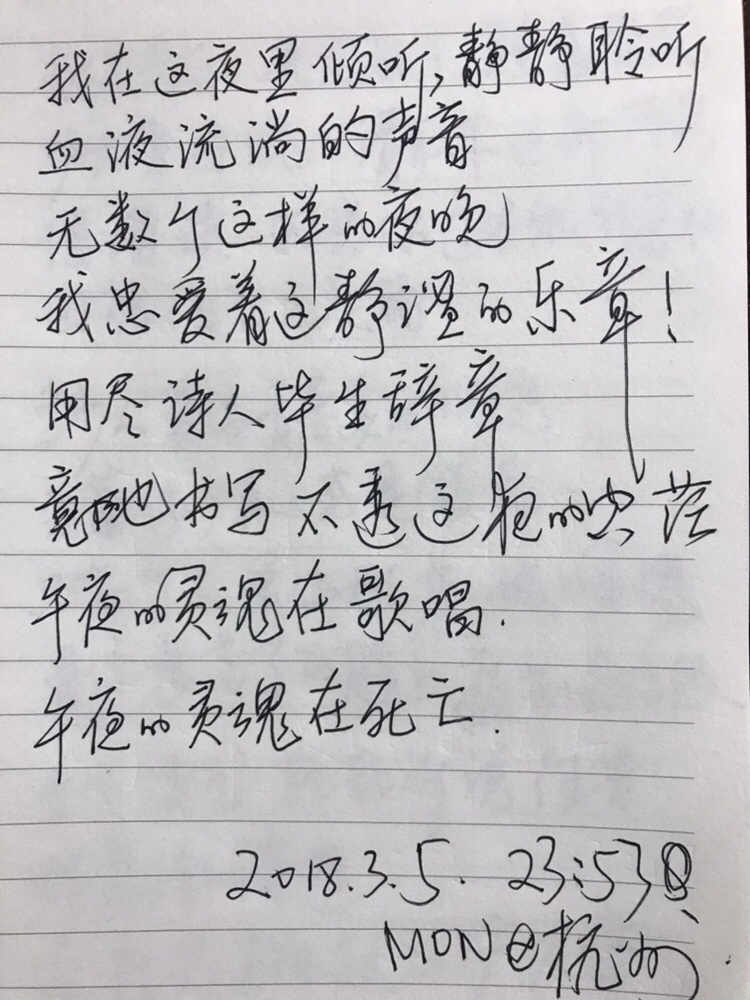 我在这夜里倾听,静静聆听
血液流淌的声音
无数个这样的夜晚
我忠爱着这静谧的乐章!
用尽诗人毕生辞章
竟也书写不透这夜的苍茫
午夜的灵魂在歌唱.
午夜的灵魂在死亡.
2018.3.5. 23:53
MON @杭州